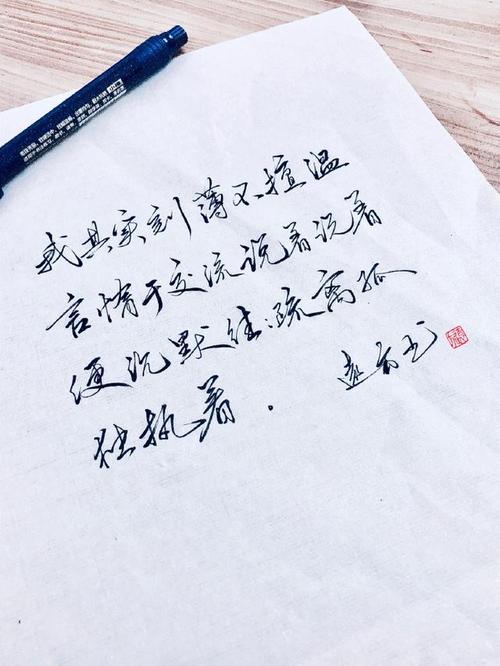 我其实刻薄不擅温
言惰于交流说着说着
便沉默生疏离孤
独执着.
远方书